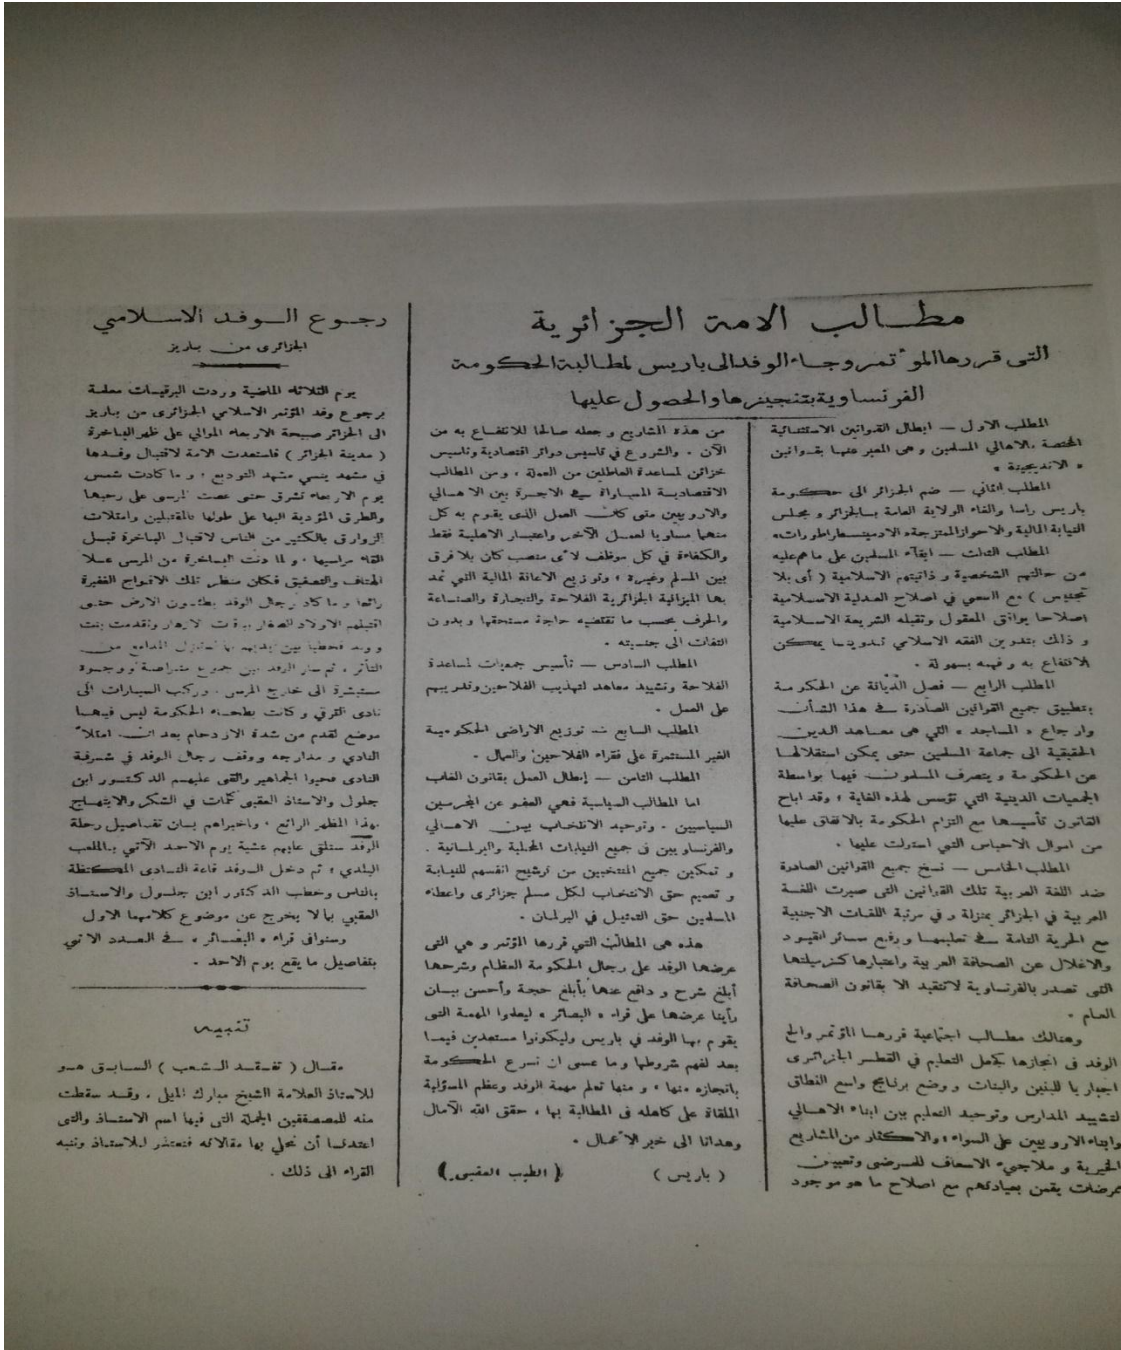 مطالب الامة الجزائرية
التى قررها المؤتمر وجاء الوفد الى باريس لمطالبة الحكومة
الفرنساوية بتنجيزها والحصول عليها
المطلب الاول — ابطال القوانين الاستثنائية
المختصة بالاهالي المسلمين وهى المعبر عنها بقوانين
« الانديجينة »
المطلب الثاني — ضم الجزائر الى حكومة
باريس راسا والغاء الولاية العامة بالجزائر ومجلس
النيابة المالية والاحواز الممتزجة
المطلب الثالث — ابقاء المسلمين على ما هم عليه
من حالتهم الشخصية وذاتيتهم الاسلامية ( أى بلا
تجنيس ) مع السعي في اصلاح العدلية الاسلامية
اصلاحا يوافق المعقول وتقبله الشريعة الاسلامية
و ذلك بتدوين الفقه الاسلامي تدوينا يمكن
الانتفاع به و فهمه بسهولة .
المطلب الرابع — فصل الديانة عن الحكومة
بتطبيق جميع القوانين الصادرة فى هذا الشأن
وارجاع « المساجد » التي هى معاهد الدين
الحقيقية الى جماعة المسلمين حتى يمكن استقلالها
عن الحكومة ويتصرف المسلمون فيها بواسطة
الجمعيات الدينية التي تؤسس لهذه الغاية ، وقد اباح
القانون تأسيسها مع التزام الحكومة بالانفاق عليها
من اموال الاحباس التي استولت عليها .
المطلب الخامس — نسخ جميع القوانين الصادرة
ضد اللغة العربية تلك القوانين التى صيرت اللغة
العربية في الجزائر بمنزلة و في مرتبة اللغات الاجنبية
مع الحرية التامة فى تعليمها ورفع سائر القيود
والاغلال عن الصحافة العربية واعتبارها كزميلتها
التى تصدر بالفرنساوية لا تتقيد الا بقانون الصحافة
العام .
وهنالك مطالب اجتماعية قررها المؤتمر والح
الوفد فى انجازها كجعل التعليم في القطر الجزائرى
اجباريا للبنين والبنات ووضع برنامج واسع النطاق
لتشييد المدارس وتوحيد التعليم بين ابناء الاهالي
وابناء الاروبيين على السواء ، والاكثار من المشاريع
الخيرية و ملاجىء الاسعاف للمرضى وتعيين
ممرضات يقمن بعيادتهم مع اصلاح ما هو موجود
من هذه المشاريع وجعله صالحا للانتفاع به من
الآن . والشروع في تأسيس دوائر اقتصادية وتأسيس
خزائن لمساعدة العاطلين من العملة ، ومن المطالب
الاقتصادية المساواة فى الاجرة بين الاهالي
والاروبيين متى كان العمل الذى يقوم به كل
منهما مساويا لعمل الآخر واعتبار الاهلية فقط
والكفاءة في كل موظف لاى منصب كان بلا فرق
بين المسلم وغيره ، وتوزيع الاعانة المالية التي تمد
بها الميزانية الجزائرية الفلاحة والتجارة والصناعة
والحرف بحسب ما تقتضيه حاجة مستحقها وبدون
التفات الى جنسيته .
المطلب السادس — تأسيس جمعيات لمساعدة
الفلاحة وتشييد معاهد لتهذيب الفلاحين وتدريبهم
على العمل .
المطلب السابع — توزيع الاراضى الحكومية
الغير المستثمرة على فقراء الفلاحين والعمال .
المطلب الثامن — إبطال العمل بقانون الغاب
اما المطالب السياسية فهي العفو عن المجرمين
السياسيين . وتوحيد الانتخاب بين الاهالي
والفرنساويين فى جميع النيابات المحلية والبرلمانية .
و تمكين جميع المنتخبين من ترشيح انفسهم للنيابة
و تعميم حق الانتخاب لكل مسلم جزائرى واعطاء
المسلمين حق التمثيل في البرلمان .
هذه هى المطالب التي قررها المؤتمر و هي التى
عرضها الوفد على رجال الحكومة العظام وشرحها
أبلغ شرح و دافع عنها بأبلغ حجة وأحسن بيان
رأينا عرضها على قراء « البصائر » ليعلموا المهمة التى
يقوم بها الوفد في باريس وليكونوا مستعدين فيما
بعد لفهم شروطها وما عسى ان تسرع الحكومة
بانجازه منها ، و منها تعلم مهمة الوفد وعظم المسؤلية
الملقاة على كاهله فى المطالبة بها ، حقق الله الآمال
وهدانا الى خير الاعمال .
( باريس ) ( الطيب العقبى )
رجوع الوفد الاسلامي
الجزائرى من باريز
يوم الثلاثاء الماضية وردت البرقيات معلمة
برجوع وفد المؤتمر الاسلامي الجزائرى من باريز
الى الجزائر صبيحة الاربعاء الموالي على ظهر الباخرة
( مدينة الجزائر ) فاستعدت الامة لاقتبال وفدها
في مشهد ينسي مشهد التوديع ، و ما كادت شمس
يوم الاربعاء تشرق حتى غصت المرسى على رحبها
والطرق المؤدية اليها على طولها بالمقتبلين وامتلات
الزوارق بالكثير من الناس لاقتبال الباخرة قبل
القاء مراسيها ، ولما دنت الباخرة من المرسى علا
الهتاف والتصفيق فكان منظر تلك الافواج الغفيرة
رائعا و ما كاد رجال الوفد يطئون الارض حتى
اقتبلهم الاولاد الصغار بباقات الازهار وتقدمت بنت
التأثر ، ثم سار الوفد بين جموع متراصة ووجوه
مستبشرة الى خارج المرسى . وركب السيارات الى
نادى الترقي و كانت بطحاء الحكومة ليس فيها
موضع لقدم من شدة الازدحام بعد ان امتلأ
النادي و مدارجه ووقف رجال الوفد في شرفة
النادى فحيوا الجماهير والقى عليهم الدكتور ابن
جلول والاستاذ العقبى كلمات في الشكر والابتهاج
بهذا المظهر الرائع ، واخبراهم بان تفاصيل رحلة
الوفد ستلقى عليهم عشية يوم الاحد الآتي بالملعب
البلدي ؛ ثم دخل الوفد قاعة النادى المكتظة
بالناس وخطب الدكتور ابن جلول والاستاذ
العقبي بما لا يخرج عن موضوع كلامهما الاول
وسنوافى قراء « البصائر » فى العدد الاتي
بتفاصيل ما يقع يوم الاحد .
تنبيه
مقال ( تفقد الشعب ) السابق هو
للاستاذ العلامة الشيخ مبارك الميلى . وقد سقطت
منه للمصففين الجملة التى فيها اسم الاستاذ والتى
اعتدنا أن نحلي بها مقالاته فنعتذر للاستاذ وننبه
القراء الى ذلك .